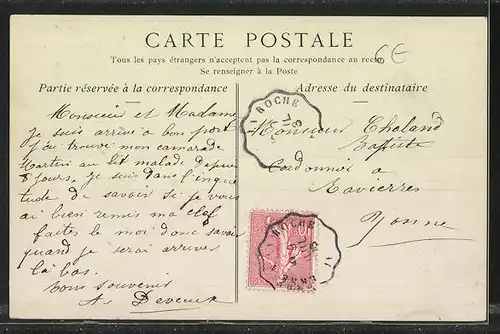 CARTE POSTALE
6E
Tous les pays étrangers n'acceptent pas la correspondance au recto
Se renseigner à la Poste
Partie réservée à la correspondance
Adresse du destinataire
Monsieur et Madame
je suis arrivé a bon port
j'ai trouvé mon camarade
Martin au lit malade depuis
8 jours, je suis dans l'inquie
tude de savoir si je vous
ai bien remis ma clef
faites le moi donc savoir
quand je serai arriver
là bas.
bons souvenirs
As Deveux
Monsieur Chaland
Baptiste
Cordonnier à
Ravières
Yonne
LA ROCHE
LA ROCHE